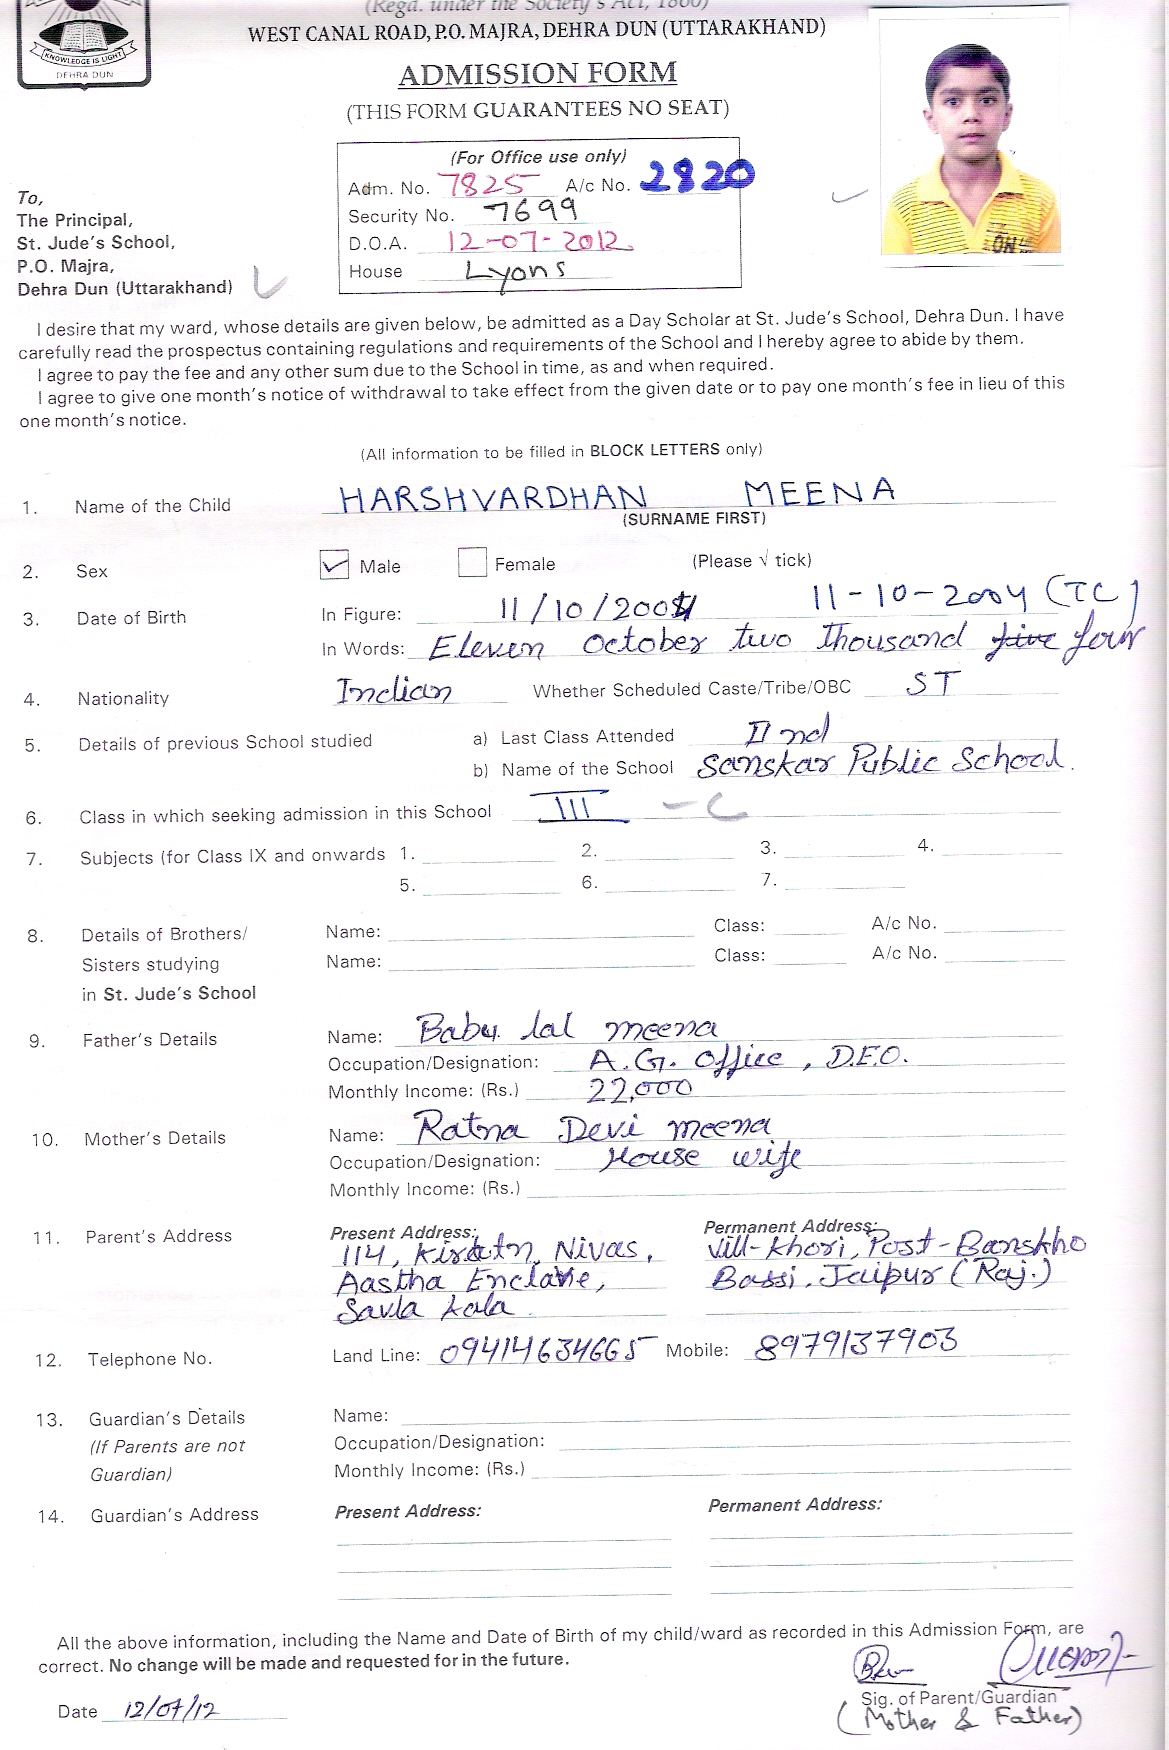 (Regd. under the Society's Act, 1860)
WEST CANAL ROAD, P.O. MAJRA, DEHRA DUN (UTTARAKHAND)
KNOWLEDGE IS LIGHT
DEHRA DUN
ADMISSION FORM
(THIS FORM GUARANTEES NO SEAT)
(For Office use only)
Adm. No. 7825 A/c No. 2820
Security No. 7699
D.O.A. 12-07-2012
House Lyons
To,
The Principal,
St. Jude's School,
P.O. Majra,
Dehra Dun (Uttarakhand)
I desire that my ward, whose details are given below, be admitted as a Day Scholar at St. Jude's School, Dehra Dun. I have
carefully read the prospectus containing regulations and requirements of the School and I hereby agree to abide by them.
I agree to pay the fee and any other sum due to the School in time, as and when required.
I agree to give one month's notice of withdrawal to take effect from the given date or to pay one month's fee in lieu of this
one month's notice.
(All information to be filled in BLOCK LETTERS only)
1. Name of the Child HARSHVARDHAN MEENA
(SURNAME FIRST)
2. Sex Male Female (Please √ tick)
3. Date of Birth In Figure: 11/10/2004 11-10-2004 (TC)
In Words: Eleven October two thousand five four
4. Nationality Indian Whether Scheduled Caste/Tribe/OBC ST
5. Details of previous School studied a) Last Class Attended II nd
b) Name of the School Sanskar Public School.
6. Class in which seeking admission in this School III - C
7. Subjects (for Class IX and onwards 1. 2. 3. 4.
5. 6. 7.
8. Details of Brothers/ Name: Class: A/c No.
Sisters studying Name: Class: A/c No.
in St. Jude's School
9. Father's Details Name: Babu lal meena
Occupation/Designation: A.G. office, D.E.O.
Monthly Income: (Rs.) 22,000
10. Mother's Details Name: Ratna Devi meena
Occupation/Designation: House wife
Monthly Income: (Rs.)
11. Parent's Address Present Address: Permanent Address:
114, Nivas, Vill-Khori, Post-Banskho
Aastha Enclave, Bassi, Jaipur (Raj.)
Savla kala
12. Telephone No. Land Line: 09414634665 Mobile: 8979137903
13. Guardian's Details Name:
(If Parents are not Occupation/Designation:
Guardian) Monthly Income: (Rs.)
14. Guardian's Address Present Address: Permanent Address:
All the above information, including the Name and Date of Birth of my child/ward as recorded in this Admission Form, are
correct. No change will be made and requested for in the future.
Date 12/07/12 Sig. of Parent/Guardian
(Mother & Father)